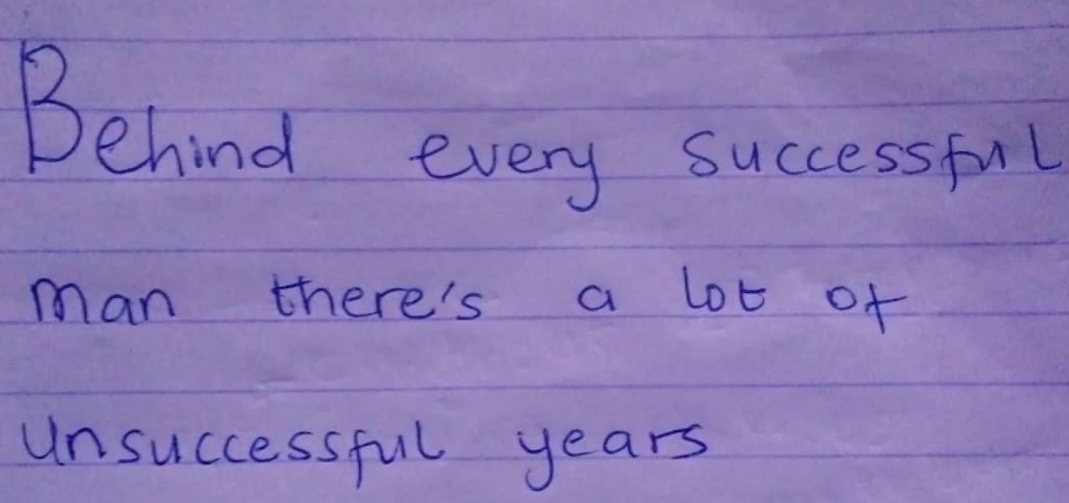 Behind every successful
man there's a lot of
unsuccessful years